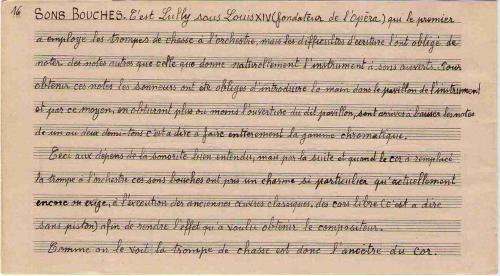 16 SONS BOUCHES. C'est Lully sous Louis XIV (fondateur de l'Opéra) qui le premier
a employé les trompes de chasse à l'orchestre, mais les difficultés d'écriture l'ont obligé de
noter des notes autres que celle que donne naturellement l'instrument à sons ouverts. Pour
obtenir ces notes les sonneurs ont été obligés d'introduire la main dans le pavillon de l'instrument
et par ce moyen, en obturant plus ou moins l'ouverture du dit pavillon, sont arrivés à baisser les notes
de un ou deux demi-tons c'est à dire à faire entièrement la gamme chromatique.
Ceci aux dépens de la sonorité bien entendu, mais par la suite et quand le cor a remplacé
la trompe à l'orchestre ces sons bouchés ont pris un charme si particulier qu'actuellement
encore on exige, à l'exécution des anciennes œuvres classiques, des cors libre (c'est à dire
sans piston) afin de rendre l'effet qu'a voulu obtenir le compositeur.
Comme on le voit la trompe de chasse est donc l'ancêtre du cor.